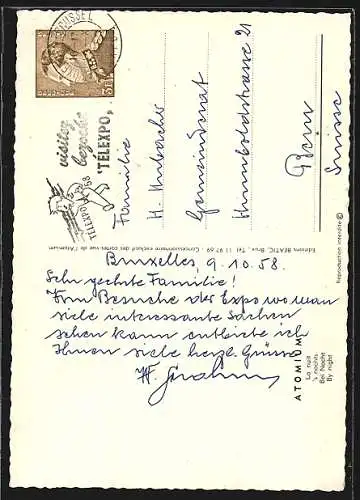 BRUSSEL
visitez
bezoekt
"TELEXPO"
TELEXPO 58
Familie
H.
Gemeinderat
Humboldtstrasse 21
Bern
Suisse
Editions BEATIC, Brux., Tél. 11.97.69 - Concessionnaire exclusif des cartes-vue de l'Atomium
Reproduction interdite ©
Bruxelles, 9.10.58.
Sehr geehrte Familie!
Vom Besuche der Expo wo man
viele interessante Sachen
sehen kann entbiete ich
Ihnen viele herzl. Grüsse
ATOMIUM
La nuit
's nachts
Bei Nacht
By night